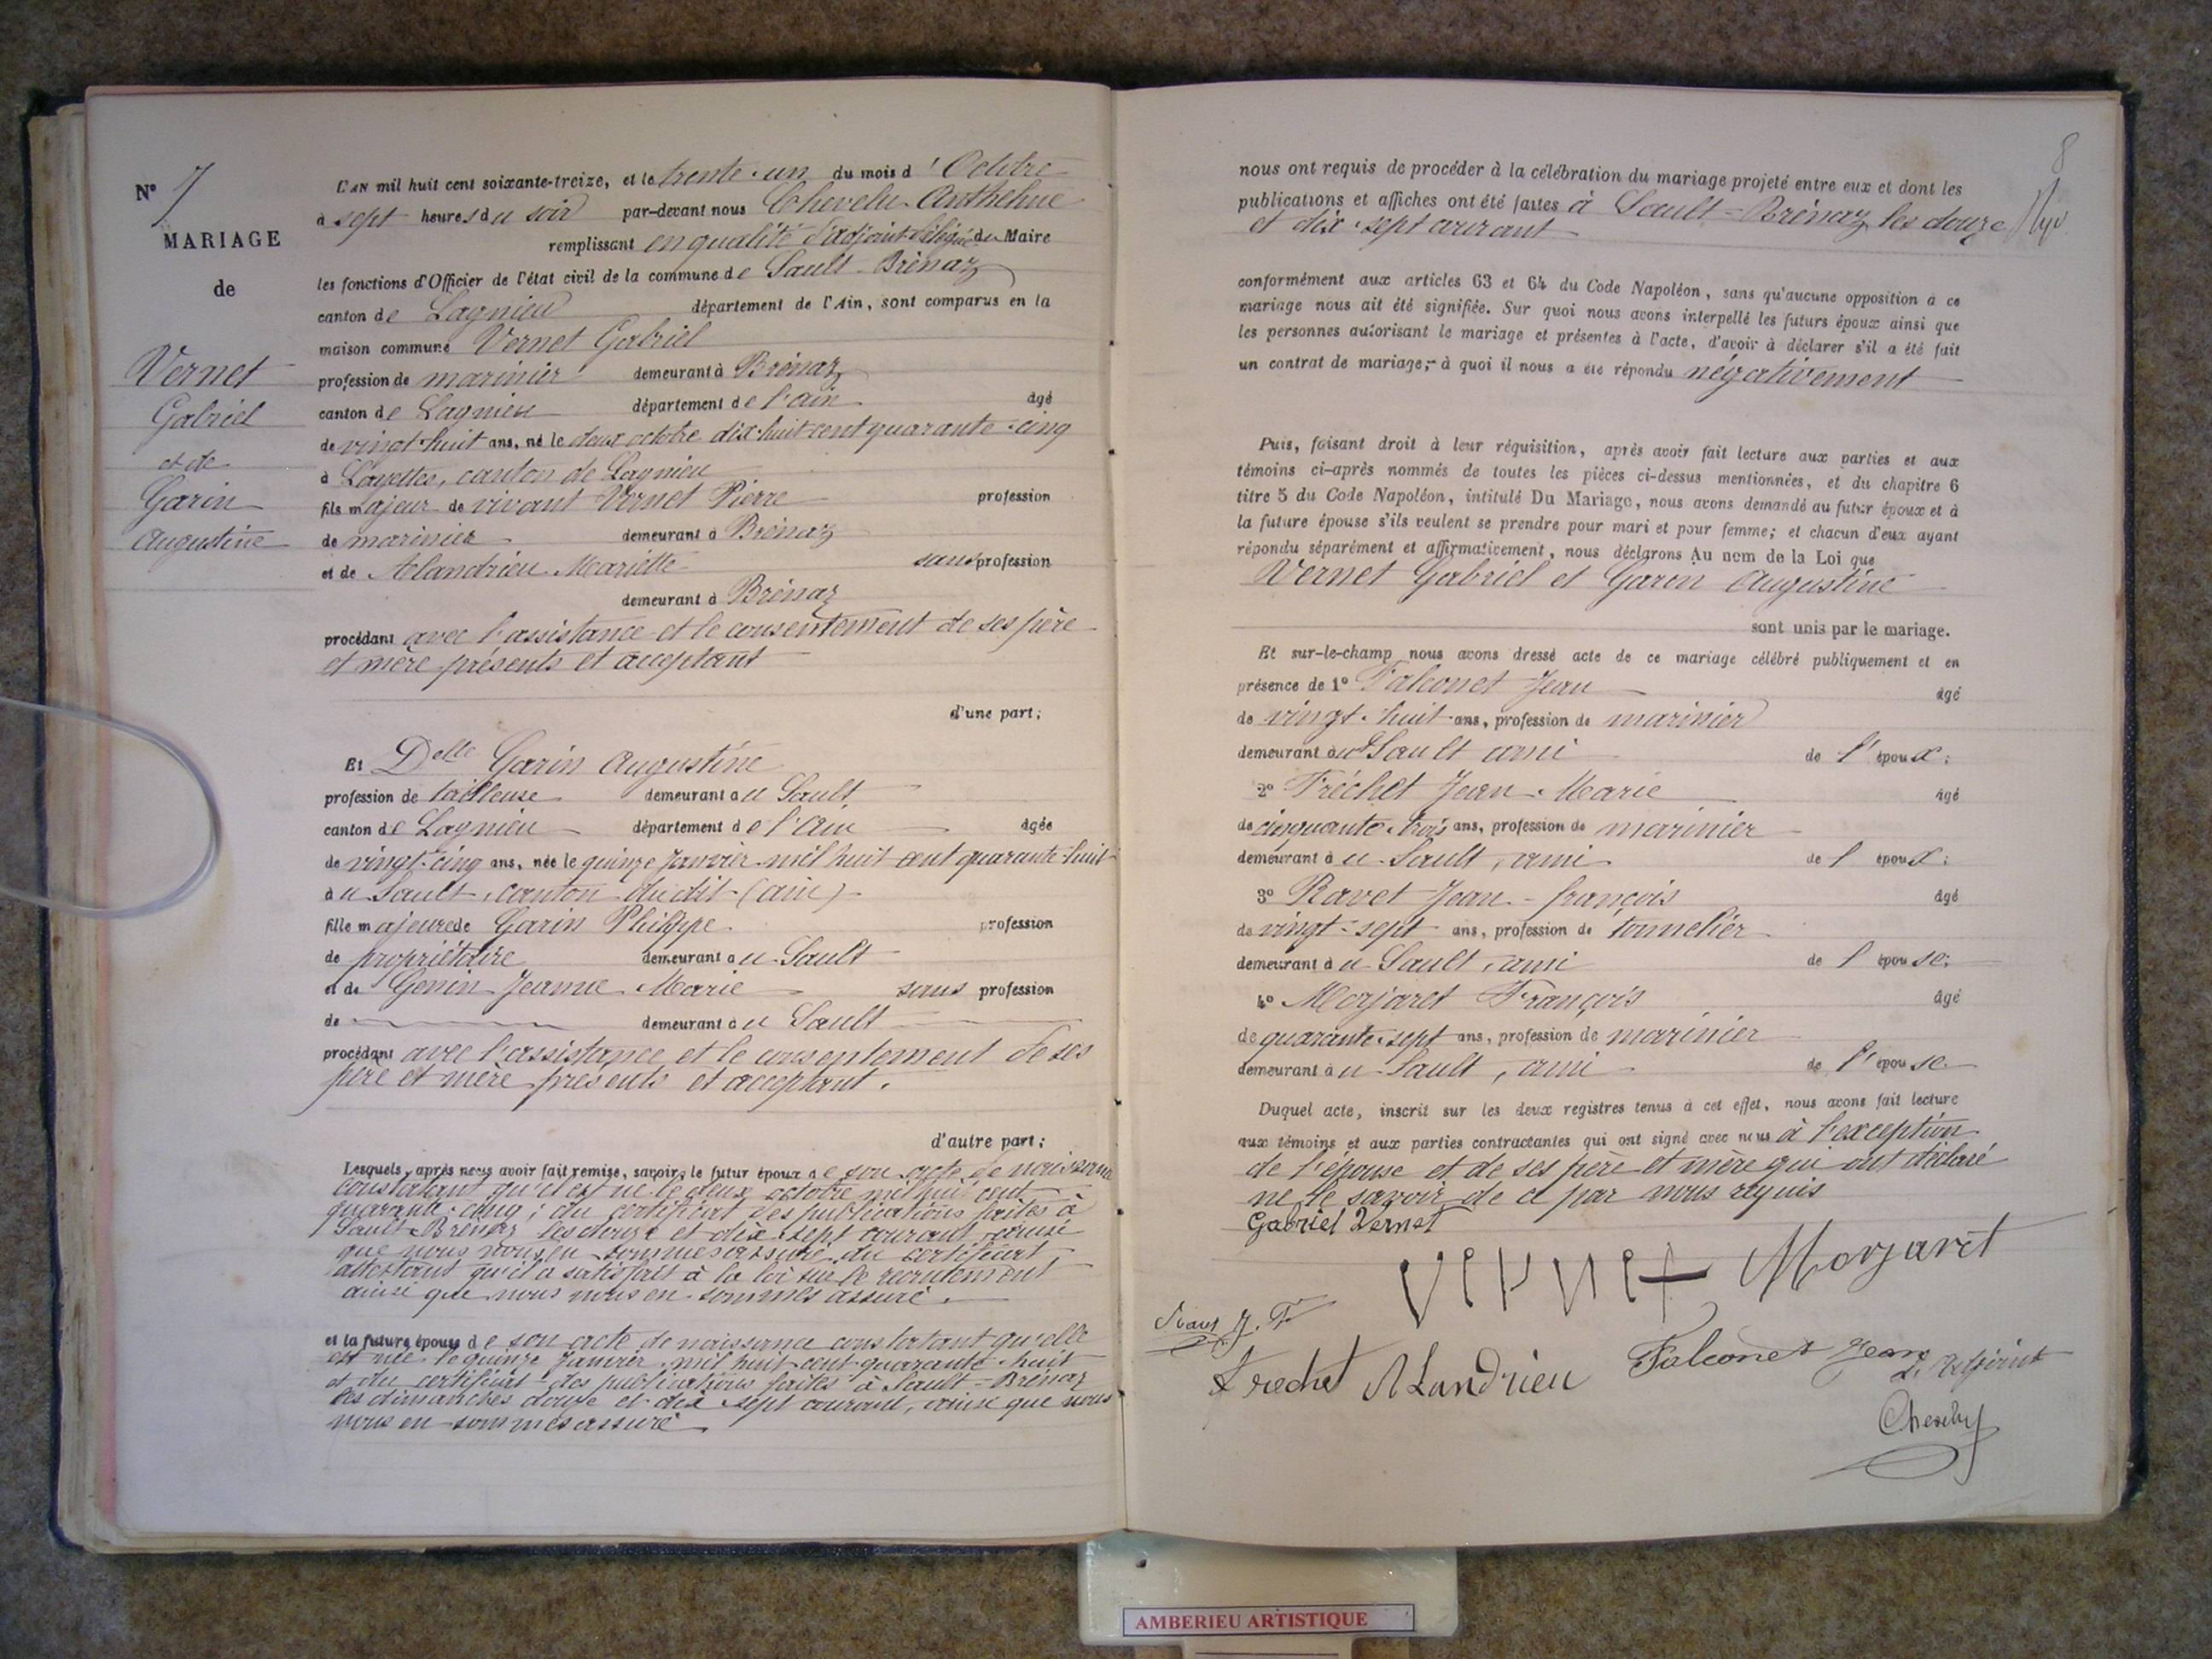 N° 7
MARIAGE
de
Vernet
Gabriel
et de
Garin
Augustine
L'AN mil huit cent soixante-treize, et le trente-un du mois d'Octobre
à sept heures du soir par-devant nous Chevelu Anthelme
remplissant en qualité d'adjoint délégué du Maire
les fonctions d'Officier de l'état civil de la commune de Sault-Brénaz
canton de Lagnieu département de l'Ain, sont comparus en la
maison commune Vernet Gabriel
profession de marinier demeurant à Brénaz
canton de Lagnieu département de l'ain âgé
de vingt-huit ans, né le deux octobre dix-huit cent quarante-cinq
à Loyettes, canton de Lagnieu
fils majeur de vivant Vernet Pierre profession
de marinier demeurant à Brénaz
et de Alandrieu Mariette sans profession
demeurant à Brénaz
procédant avec l'assistance et le consentement de ses père
et mère présents et acceptant
d'une part;
Et Delle Garin Augustine
profession de tailleuse demeurant au Sault
canton de Lagnieu département de l'Ain âgée
de vingt-cinq ans, née le quinze Janvier mil huit cent quarante-huit
au Sault, canton dudit (ain)
fille majeure de Garin Philippe profession
de propriétaire demeurant au Sault
et de Genin Jeanne Marie sans profession
de demeurant au Sault
procédant avec l'assistance et le consentement de ses
père et mère présents et acceptant.
d'autre part;
Lesquels, après nous avoir fait remise, savoir, le futur époux de son acte de naissance
constatant qu'il est né le deux octobre mil huit cent
quarante-cinq; du certificat des publications faites à
Sault-Brénaz les douze et dix-sept courant, ainsi
que nous nous en sommes assuré, du certificat
attestant qu'il a satisfait à la loi sur le recrutement
ainsi que nous nous en sommes assuré.
et la future épouse de son acte de naissance constatant qu'elle
est née le quinze Janvier mil huit cent quarante-huit
et du certificat des publications faites à Sault-Brénaz
les dimanches douze et dix-sept courant, ainsi que nous
nous en sommes assuré
8
nous ont requis de procéder à la célébration du mariage projeté entre eux et dont les
publications et affiches ont été faites à Sault-Brénaz les douze
et dix-sept courant
conformément aux articles 63 et 64 du Code Napoléon, sans qu'aucune opposition à ce
mariage nous ait été signifiée. Sur quoi nous avons interpellé les futurs époux ainsi que
les personnes autorisant le mariage et présentes à l'acte, d'avoir à déclarer s'il a été fait
un contrat de mariage; à quoi il nous a été répondu négativement
Puis, faisant droit à leur réquisition, après avoir fait lecture aux parties et aux
témoins ci-après nommés de toutes les pièces ci-dessus mentionnées, et du chapitre 6
titre 5 du Code Napoléon, intitulé Du Mariage, nous avons demandé au futur époux et à
la future épouse s'ils veulent se prendre pour mari et pour femme; et chacun d'eux ayant
répondu séparément et affirmativement, nous déclarons Au nom de la Loi que
Vernet Gabriel et Garin Augustine
sont unis par le mariage.
Et sur-le-champ nous avons dressé acte de ce mariage célébré publiquement et en
présence de 1° Falconet Jean âgé
de vingt-huit ans, profession de marinier
demeurant au Sault ami de l'époux;
2° Fréchet Jean-Marie âgé
de cinquante-trois ans, profession de marinier
demeurant au Sault, ami de l'époux;
3° Ravet Jean-françois âgé
de vingt-sept ans, profession de tonnelier
demeurant au Sault, ami de l'épouse;
4° Morjaret François âgé
de quarante-sept ans, profession de marinier
demeurant au Sault, ami de l'épouse
Duquel acte, inscrit sur les deux registres tenus à cet effet, nous avons fait lecture
aux témoins et aux parties contractantes qui ont signé avec nous à l'exception
de l'épouse et de ses père et mère qui ont déclaré
ne le savoir de ce par nous requis
Gabriel Vernet
vernet Morjaret
J. F.
frechet Alandrieu Falconet Jean
L'Adjoint
Chevelu
AMBERIEU ARTISTIQUE